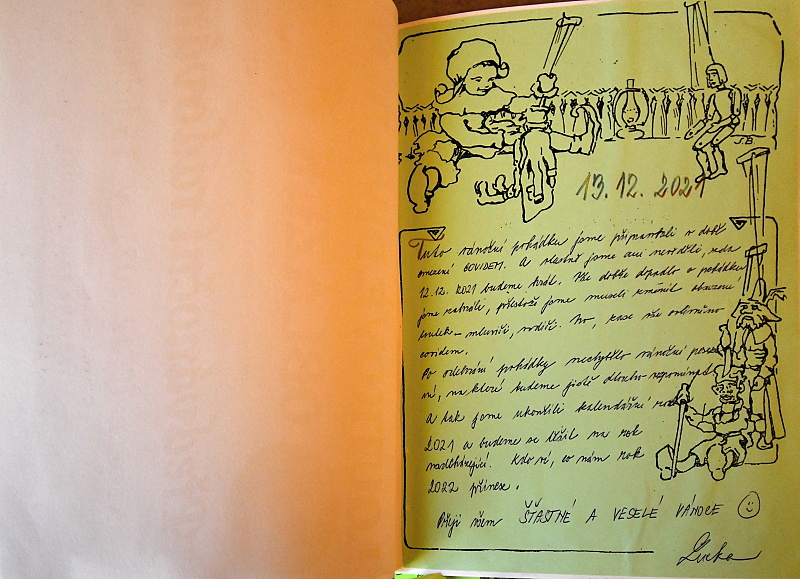 JB
13. 12. 2021
Tuto vánoční pohádku jsme připravili v době
omezení COVIDEM. A vlastně jsme ani nevěděli, zda
12.12. 2021 budeme hrát. Vše dobře dopadlo a pohádku
jsme zahráli, přestože jsme museli změnit obsazení
loutek – mluviči, vodiči. No, zase vše ovlivněno
covidem.
Po odehrání pohádky nechybělo vánoční posezení
na které budeme jistě dlouho vzpomínat
A tak jsme ukončili kalendářní rok
2021 a budeme se těšit na rok
nadcházející. Kdo ví, co nám rok
2022 přinese.
Přeji všem ŠŤASTNÉ A VESELÉ VÁNOCE
Lucka